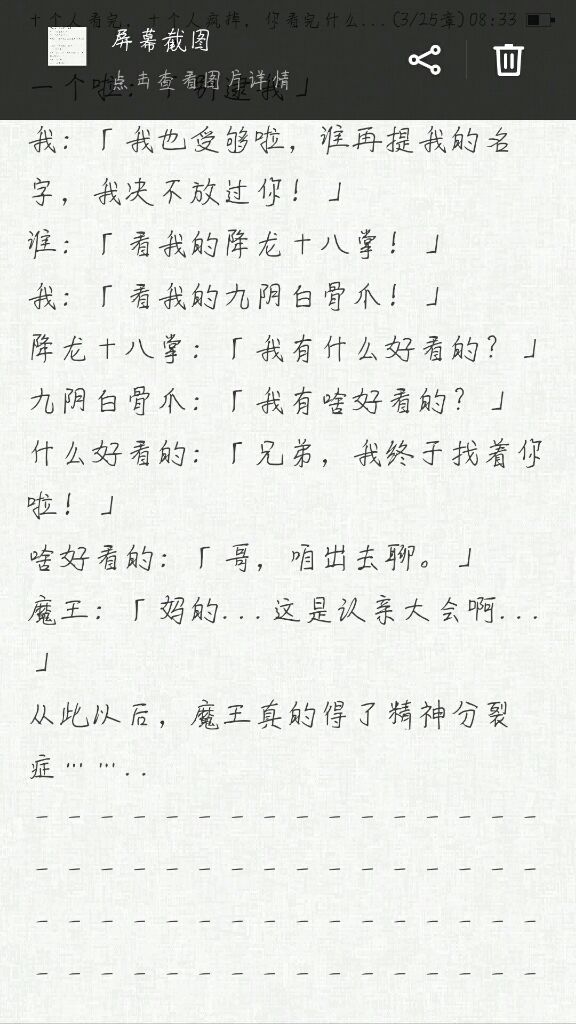 十个人看完，十个人疯掉，你看完什么...(3/25章)08:33
屏幕截图
点击查看图片详情
一个啦：「别逮我」
我：「我也受够啦，谁再提我的名
字，我决不放过你！」
谁：「看我的降龙十八掌！」
我：「看我的九阴白骨爪！」
降龙十八掌：「我有什么好看的？」
九阴白骨爪：「我有啥好看的？」
什么好看的：「兄弟，我终于找着你
啦！」
啥好看的：「哥，咱出去聊。」
魔王：「妈的...这是认亲大会啊...
」
从此以后，魔王真的得了精神分裂
症……..
－－－－－－－－－－－－－－－－
－－－－－－－－－－－－－－－－
－－－－－－－－－－－－－－－－
－－－－－－－－－－－－－－－－